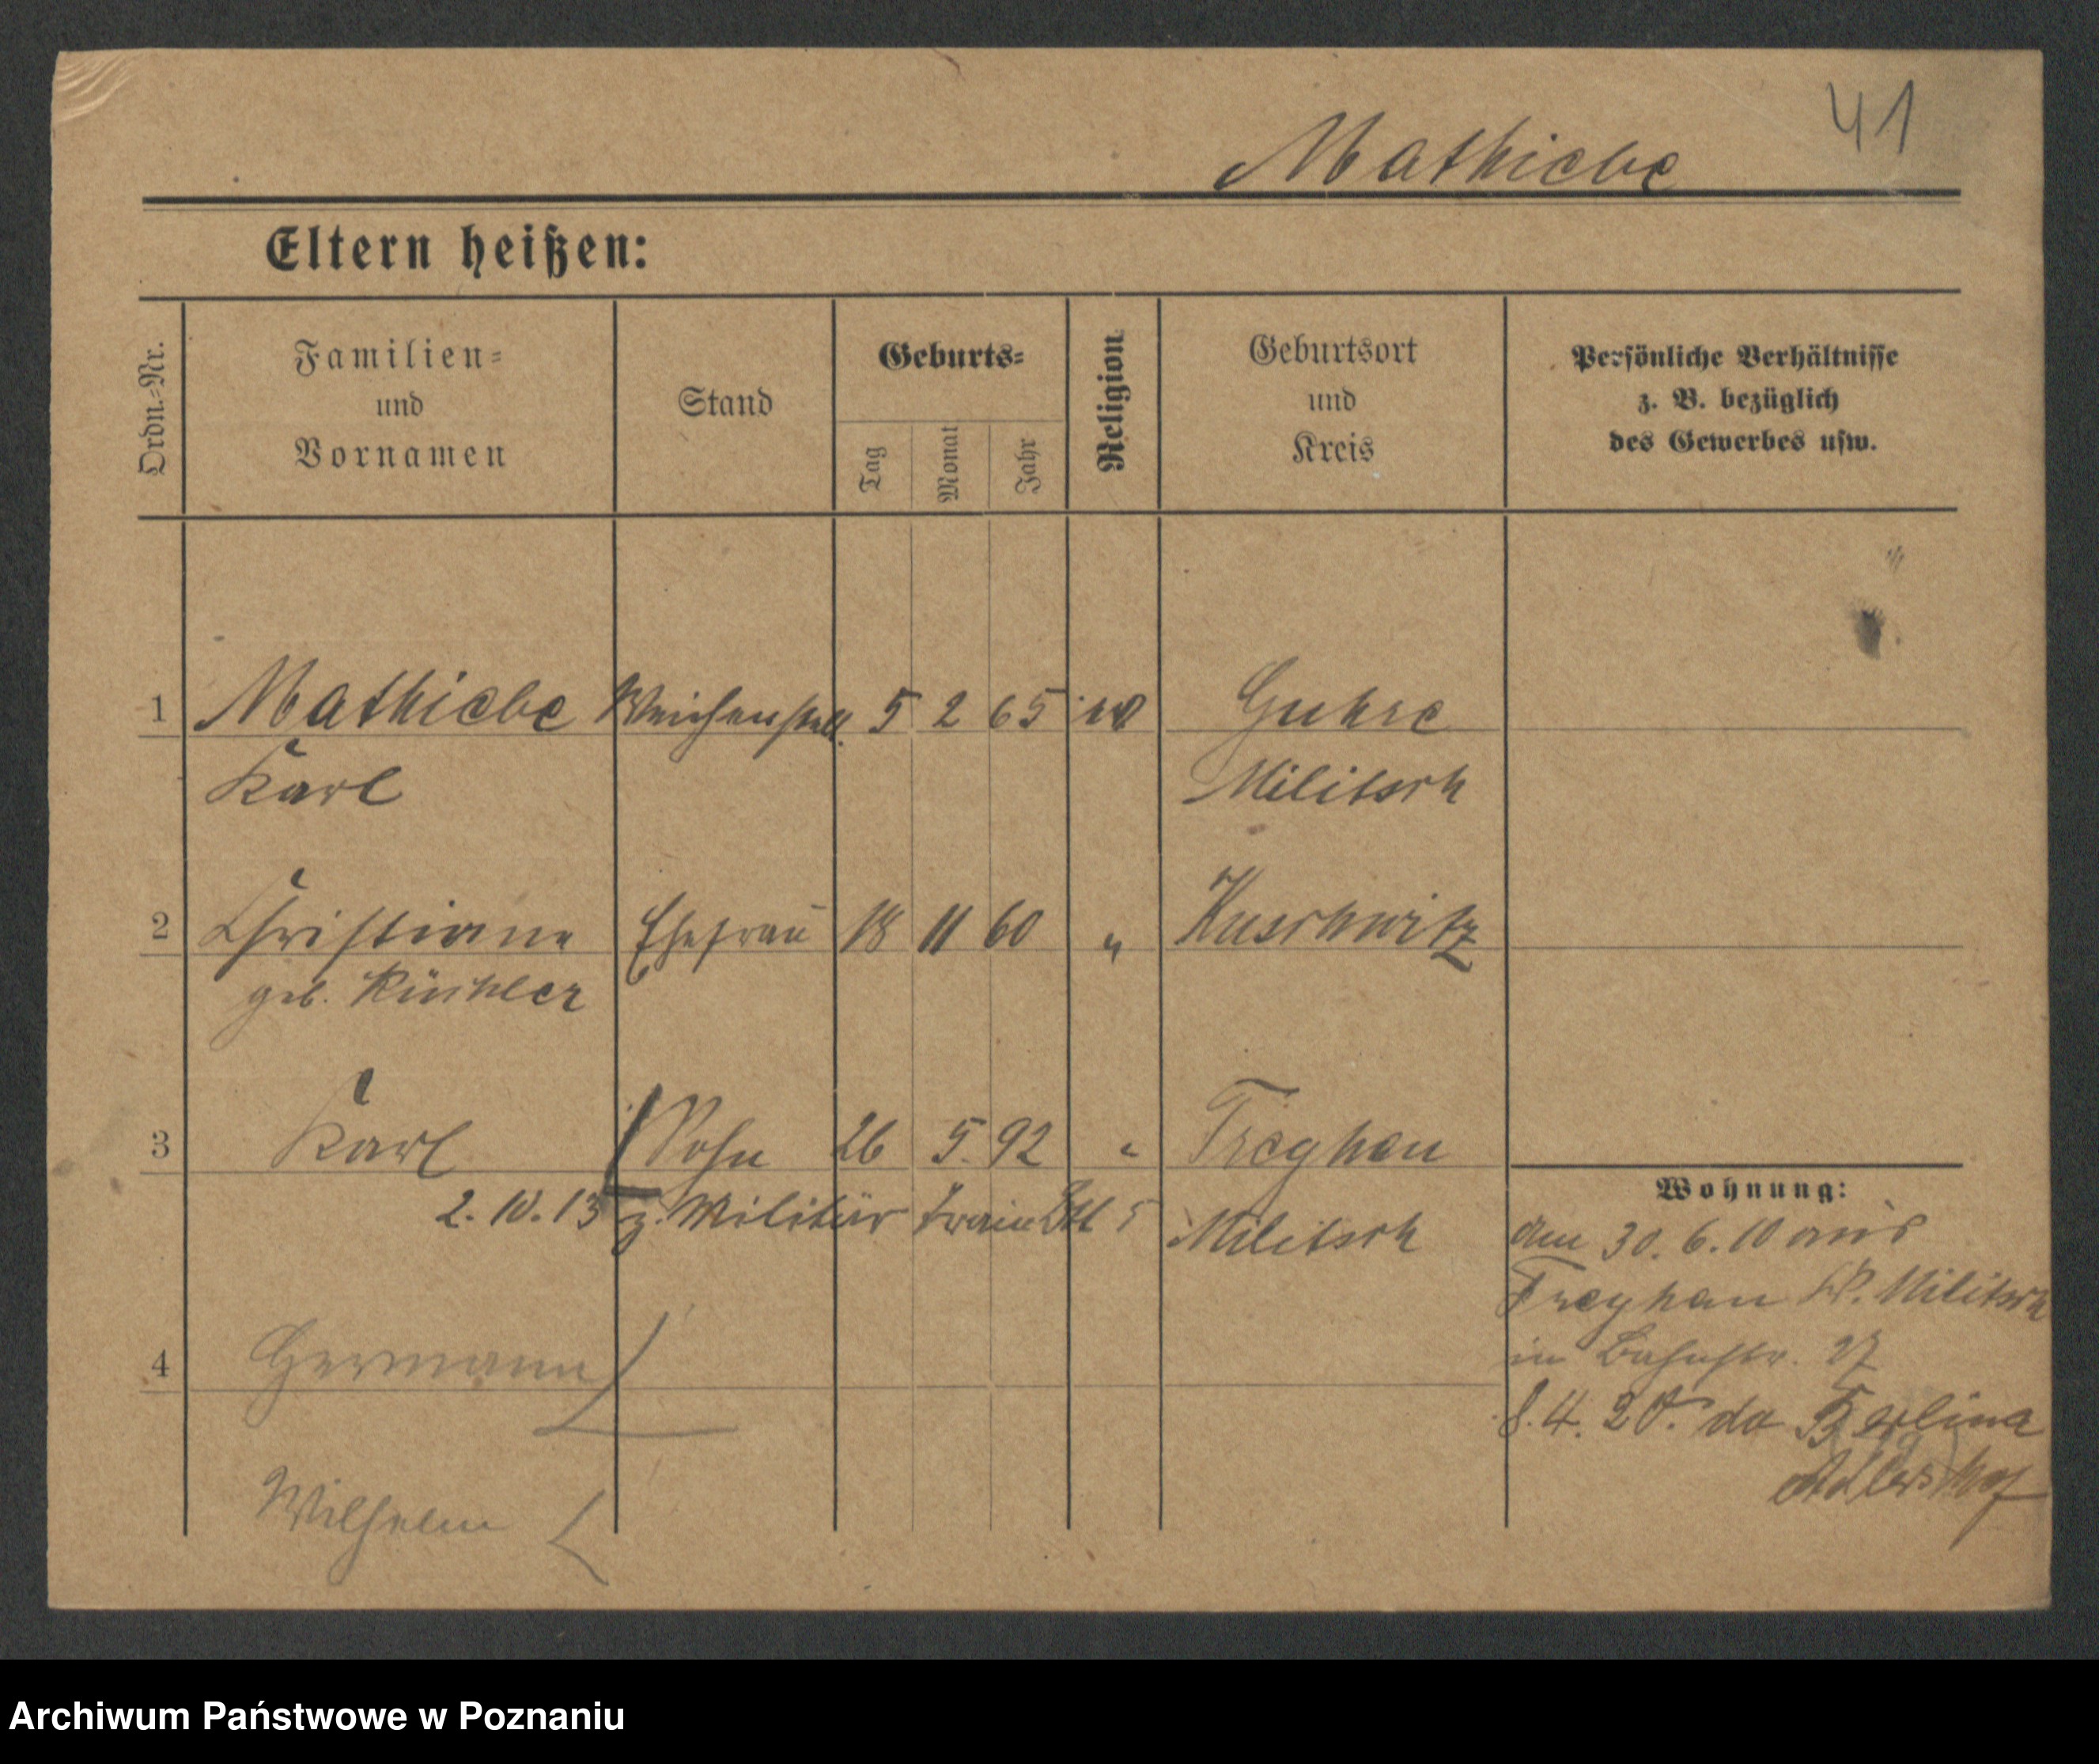 41
Mathiebe
Eltern heißen:
Ordn.-Nr.
Familien-
und
Vornamen
Stand
Geburts-
Tag
Monat
Jahr
Religion
Geburtsort
und
Kreis
Persönliche Verhältnisse
z. B. bezüglich
des Gewerbes usw.
1 Mathiebe Weichenstell. 5 2 65 ev Guhre
Karl Militsch
2 Christiane Ehefrau 18 11 60 " Kuschwitz
geb. Küchler
3 Karl Sohn 26 5. 92 " Freyhan
2. 10. 13 z. Militär Train Btl 5 Militsch
Wohnung:
am 30. 6. 10 aus
Freyhan Kr. Militsch
4 Hermann
in Bahnstr. 27
8. 4. 20. do Berlina
Adlershof
Wilhelm
Archiwum Państwowe w Poznaniu